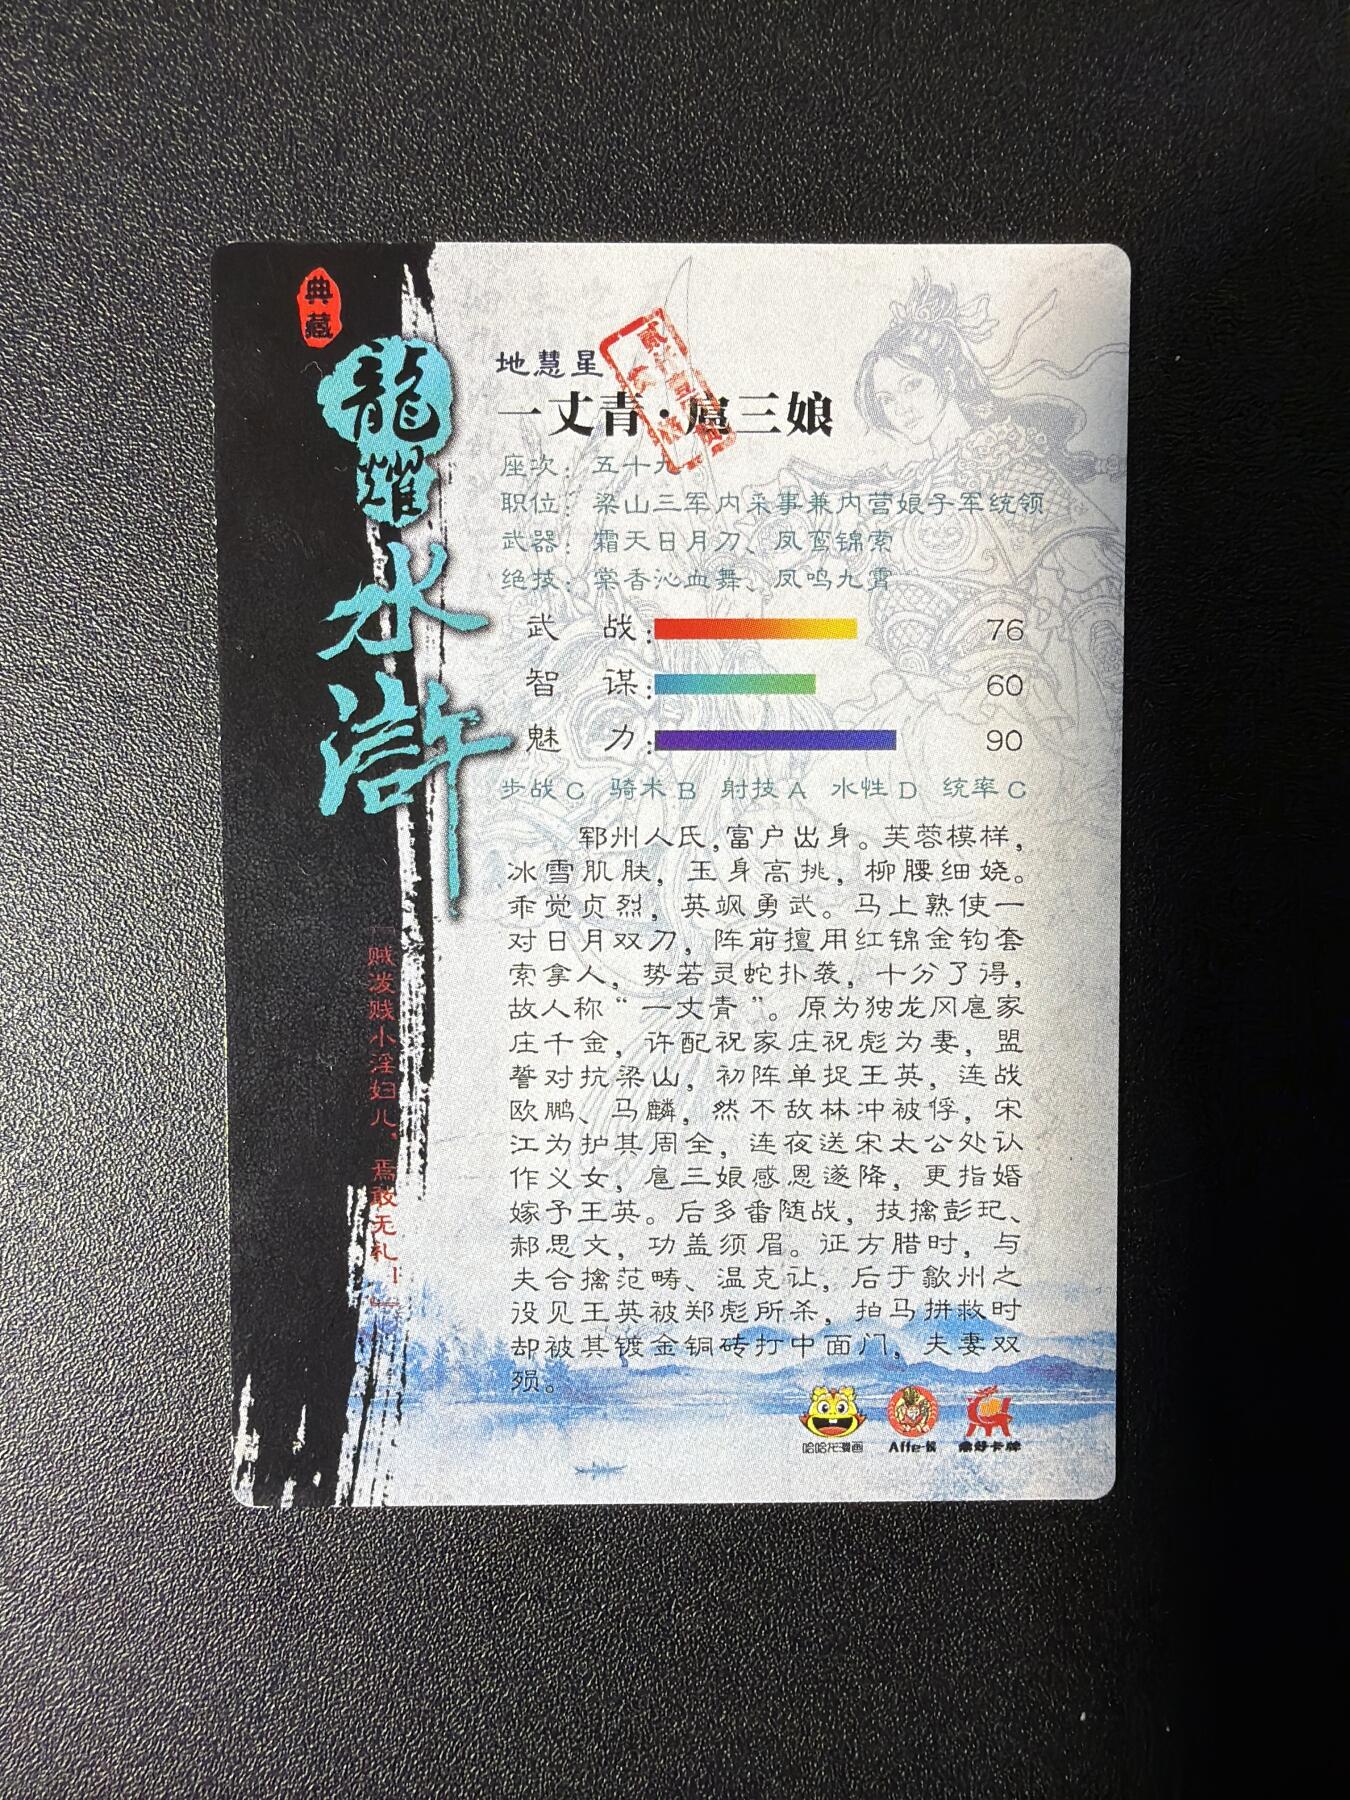 典藏
龍耀
水滸
「贼泼贱小淫妇儿，焉敢无礼！」
地慧星
一丈青·扈三娘
座次：五十九
职位：梁山三军内采事兼内营娘子军统领
武器：霜天日月刀、凤鸾锦索
绝技：棠香沁血舞、凤鸣九霄
武 战：76
智 谋：60
魅 力：90
步战C 骑术B 射技A 水性D 统率C
郓州人氏，富户出身。芙蓉模样，
冰雪肌肤，玉身高挑，柳腰细娆。
乖觉贞烈，英飒勇武。马上熟使一
对日月双刀，阵前擅用红锦金钩套
索拿人，势若灵蛇扑袭，十分了得，
故人称“一丈青”。原为独龙冈扈家
庄千金，许配祝家庄祝彪为妻，盟
誓对抗梁山，初阵单捉王英，连战
欧鹏、马麟，然不敌林冲被俘，宋
江为护其周全，连夜送宋太公处认
作义女，扈三娘感恩遂降，更指婚
嫁予王英。后多番随战，技擒彭玘、
郝思文，功盖须眉。证方腊时，与
夫合擒范畴、温克让，后于歙州之
役见王英被郑彪所杀，拍马拼救时
却被其镀金铜砖打中面门，夫妻双
殒。
哈哈龙漫画